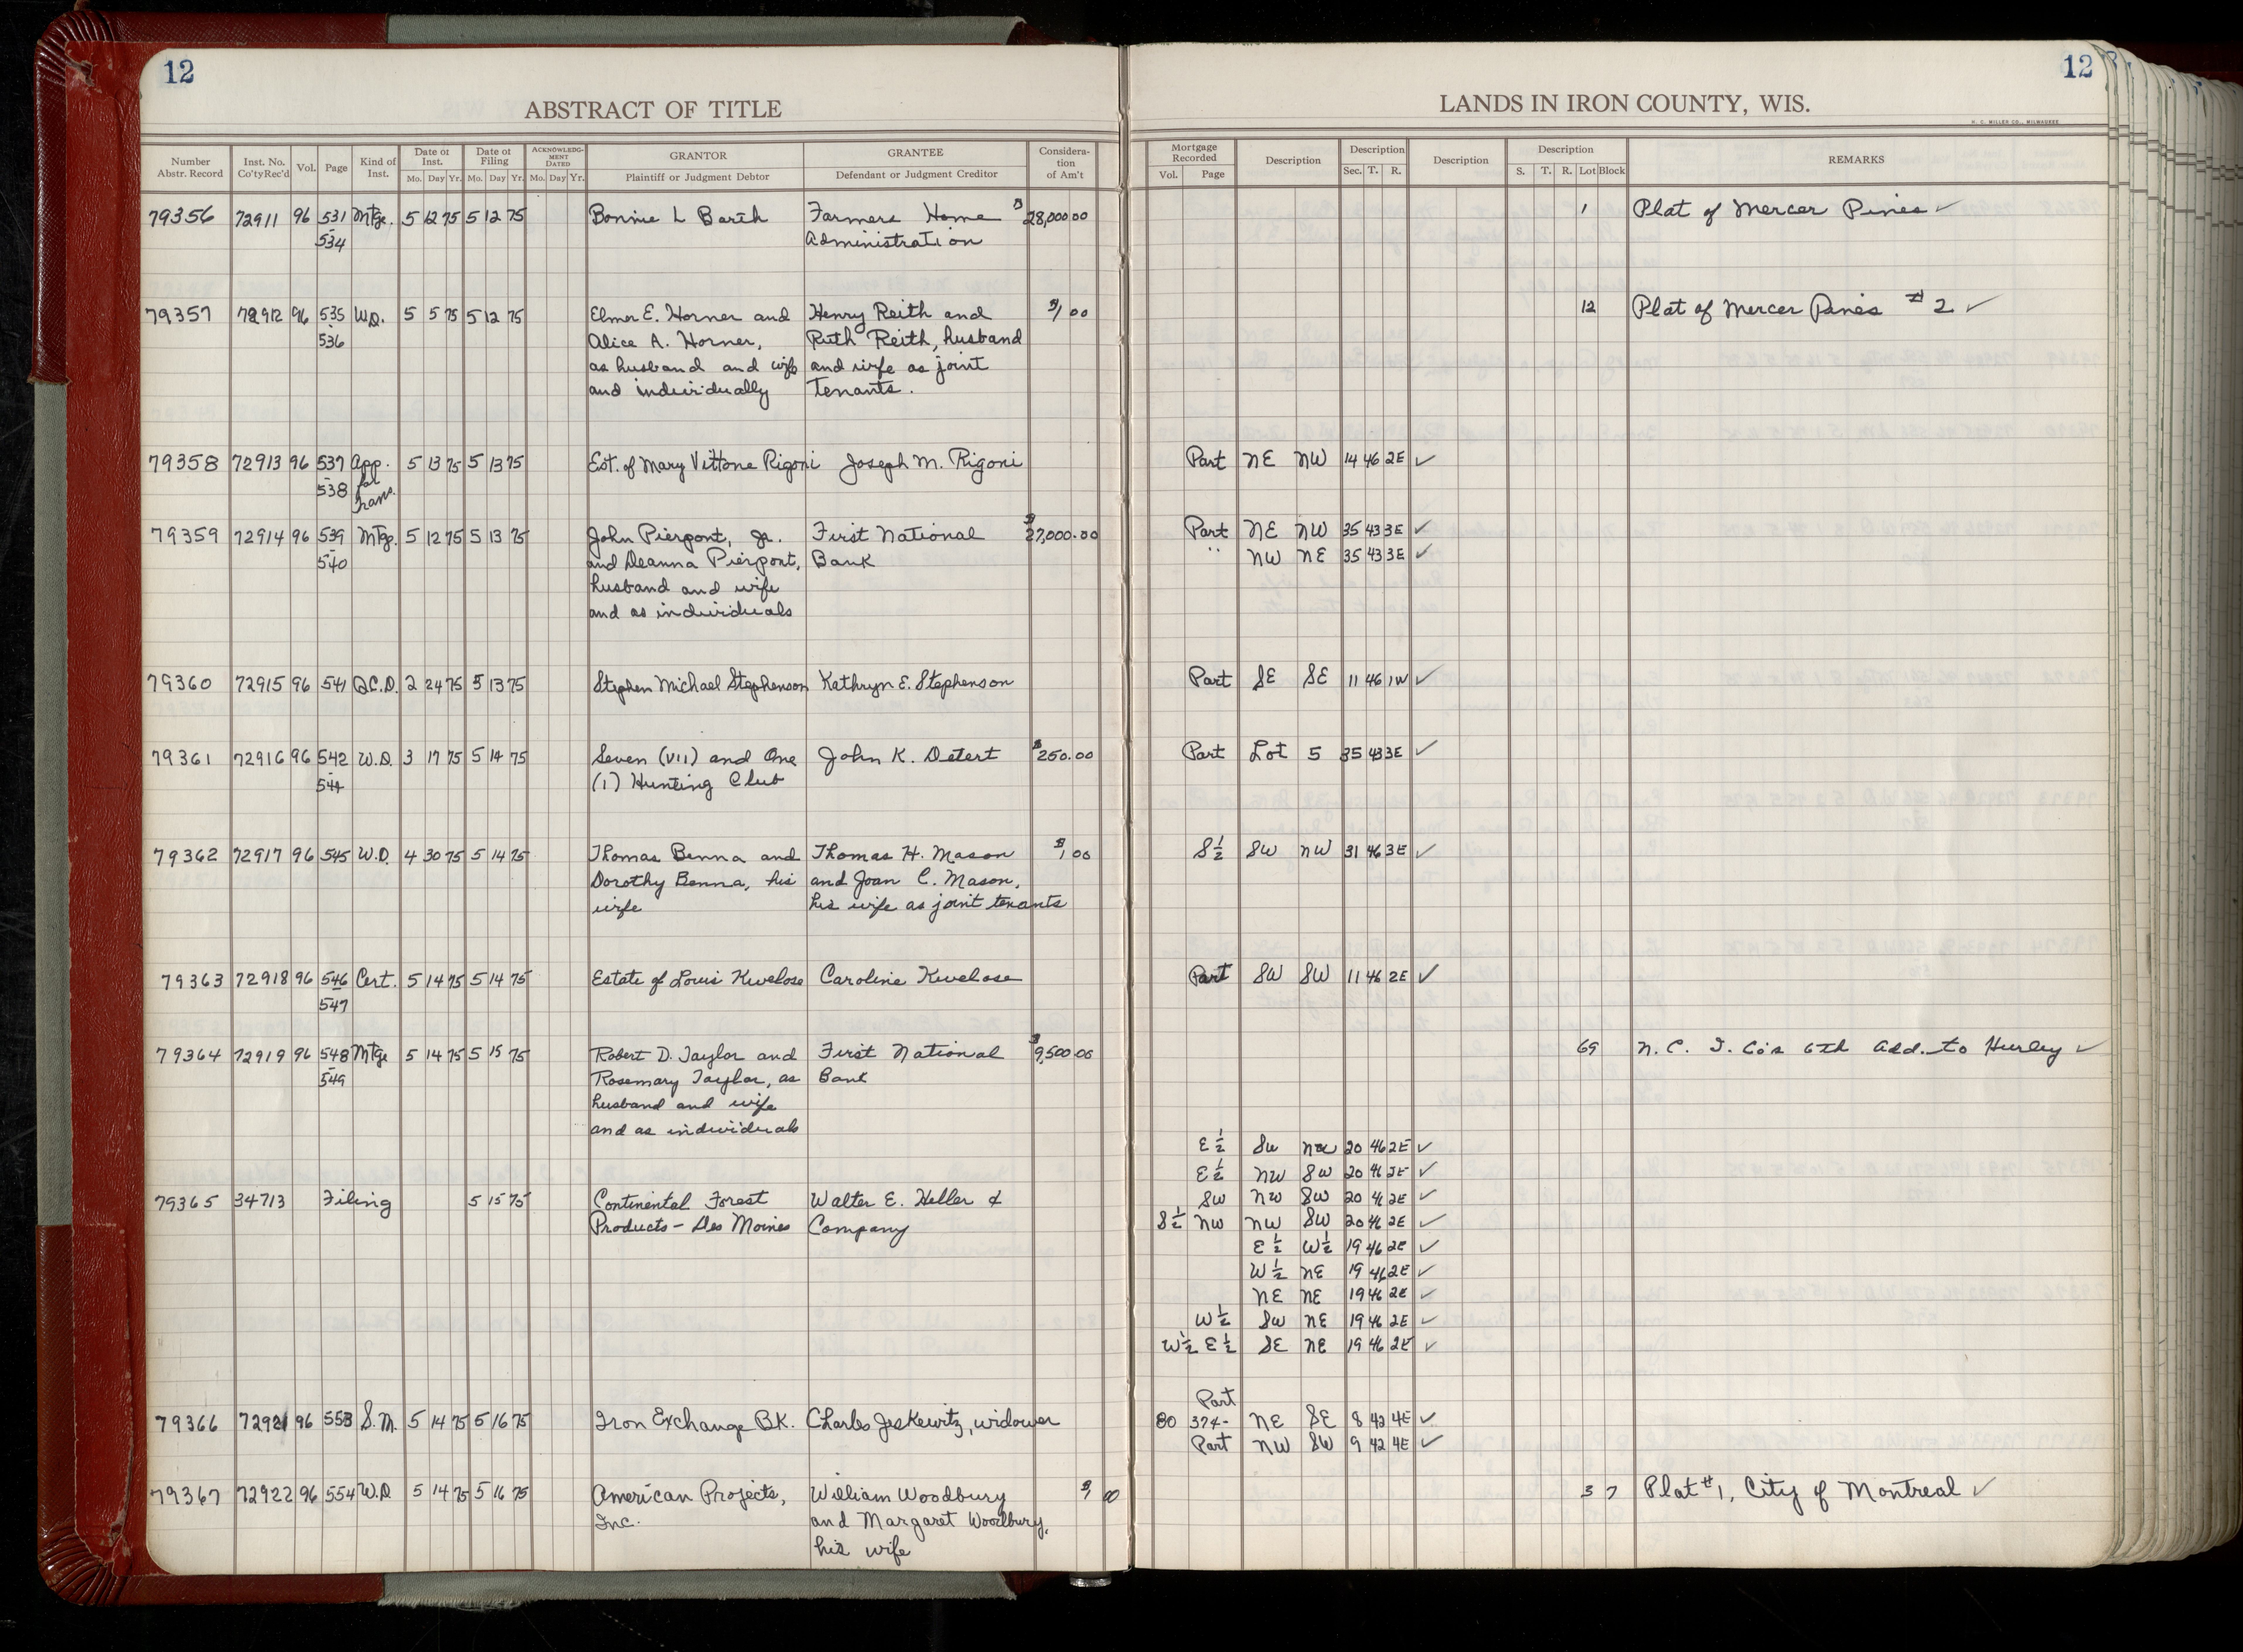 12
12
ABSTRACT OF TITLE
LANDS IN IRON COUNTY, WIS.
H. C. MILLER CO., MILWAUKEE
Number Abstr. Record Inst. No. Co'ty Rec'd Vol. Page Kind of Inst. Date of Inst. Mo. Day Yr. Date of Filing Mo. Day Yr. ACKNOWLEDGMENT DATED Mo. Day Yr. GRANTOR Plaintiff or Judgment Debtor GRANTEE Defendant or Judgment Creditor Consideration of Am't Mortgage Recorded Vol. Page Description Description Sec. T. R. Description Description S. T. R. Lot Block REMARKS
79356 72911 96 531 Mtge. 5 12 75 5 12 75 Bonnie L Barth Farmers Home $28,000.00 1 Plat of Mercer Pines ✓
- 534 Administration
79357 72912 96 535 W.D. 5 5 75 5 12 75 Elmer E. Horner and Henry Reith and $1.00 12 Plat of Mercer Pines #2 ✓
- 536 Alice A. Horner, Ruth Reith, husband
as husband and wife and wife as joint
and individually Tenants.
79358 72913 96 537 App. 5 13 75 5 13 75 Est. of Mary Vittone Rigoni Joseph M. Rigoni Part NE NW 14 46 2E ✓
- 538 for
Trans.
79359 72914 96 539 Mtge. 5 12 75 5 13 75 John Pierpont, Jr. First National $27,000.00 Part NE NW 35 43 3E ✓
- 540 and Deanna Pierpont, Bank " NW NE 35 43 3E ✓
husband and wife
and as individuals
79360 72915 96 541 Q.C.D. 2 24 75 5 13 75 Stephen Michael Stephenson Kathryn E. Stephenson Part SE SE 11 46 1W ✓
79361 72916 96 542 W.D. 3 17 75 5 14 75 Seven (VII) and One John K. Detert $250.00 Part Lot 5 35 43 3E ✓
- 544 (1) Hunting Club
79362 72917 96 545 W.D. 4 30 75 5 14 75 Thomas Benna and Thomas H. Mason $1.00 S½ SW NW 31 46 3E ✓
Dorothy Benna, his and Joan C. Mason,
wife his wife as joint tenants
79363 72918 96 546 Cert. 5 14 75 5 14 75 Estate of Louis Kwelose Caroline Kwelose Part SW SW 11 46 2E ✓
547
79364 72919 96 548 Mtge 5 14 75 5 15 75 Robert D. Taylor and First National $9,500.00 69 N. C. I. Co's 6th Add. to Hurley ✓
- 549 Rosemary Taylor, as Bank
husband and wife
and as individuals
E½ SW 20 46 2E ✓
E½ NW SW 20 46 2E ✓
79365 34713 Filing 5 15 75 Continental Forest Walter E. Heller & SW NW SW 20 46 2E ✓
Products - Des Moines Company S½ NW NW SW 20 46 2E ✓
E½ W½ 19 46 2E ✓
W½ NE 19 46 2E ✓
NE NE 19 46 2E ✓
W½ SW NE 19 46 2E ✓
W½ E½ SE NE 19 46 2E ✓
Part
79366 72921 96 553 S.M. 5 14 75 5 16 75 Iron Exchange BK. Charles Jeskewitz, widower 80 374- NE SE 8 42 4E ✓
Part NW SW 9 42 4E ✓
79367 72922 96 554 W.D 5 14 75 5 16 75 American Projects, William Woodbury $1 00 3 7 Plat #1, City of Montreal ✓
Inc. and Margaret Woodbury,
his wife